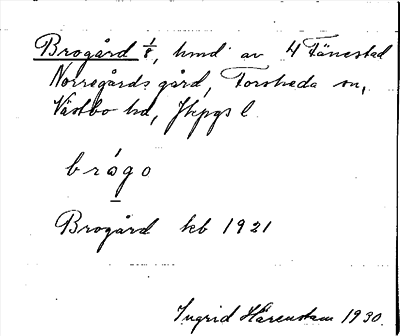 Brogård 1/8, hmd av 4 Tånestad
Norregårds gård, Forsheda sn,
Västbo hd, Jkpgs l.
brógo
Brogård kb 1921
Ingrid Härenstam 1930.